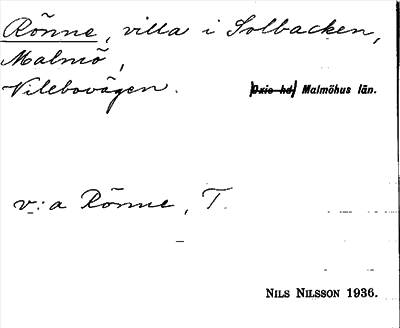 Rönne, villa i Solbacken,
Malmö,
Vilebovägen. Oxie hd. Malmöhus län.
v:a Rönne, T.
NILS NILSSON 1936.